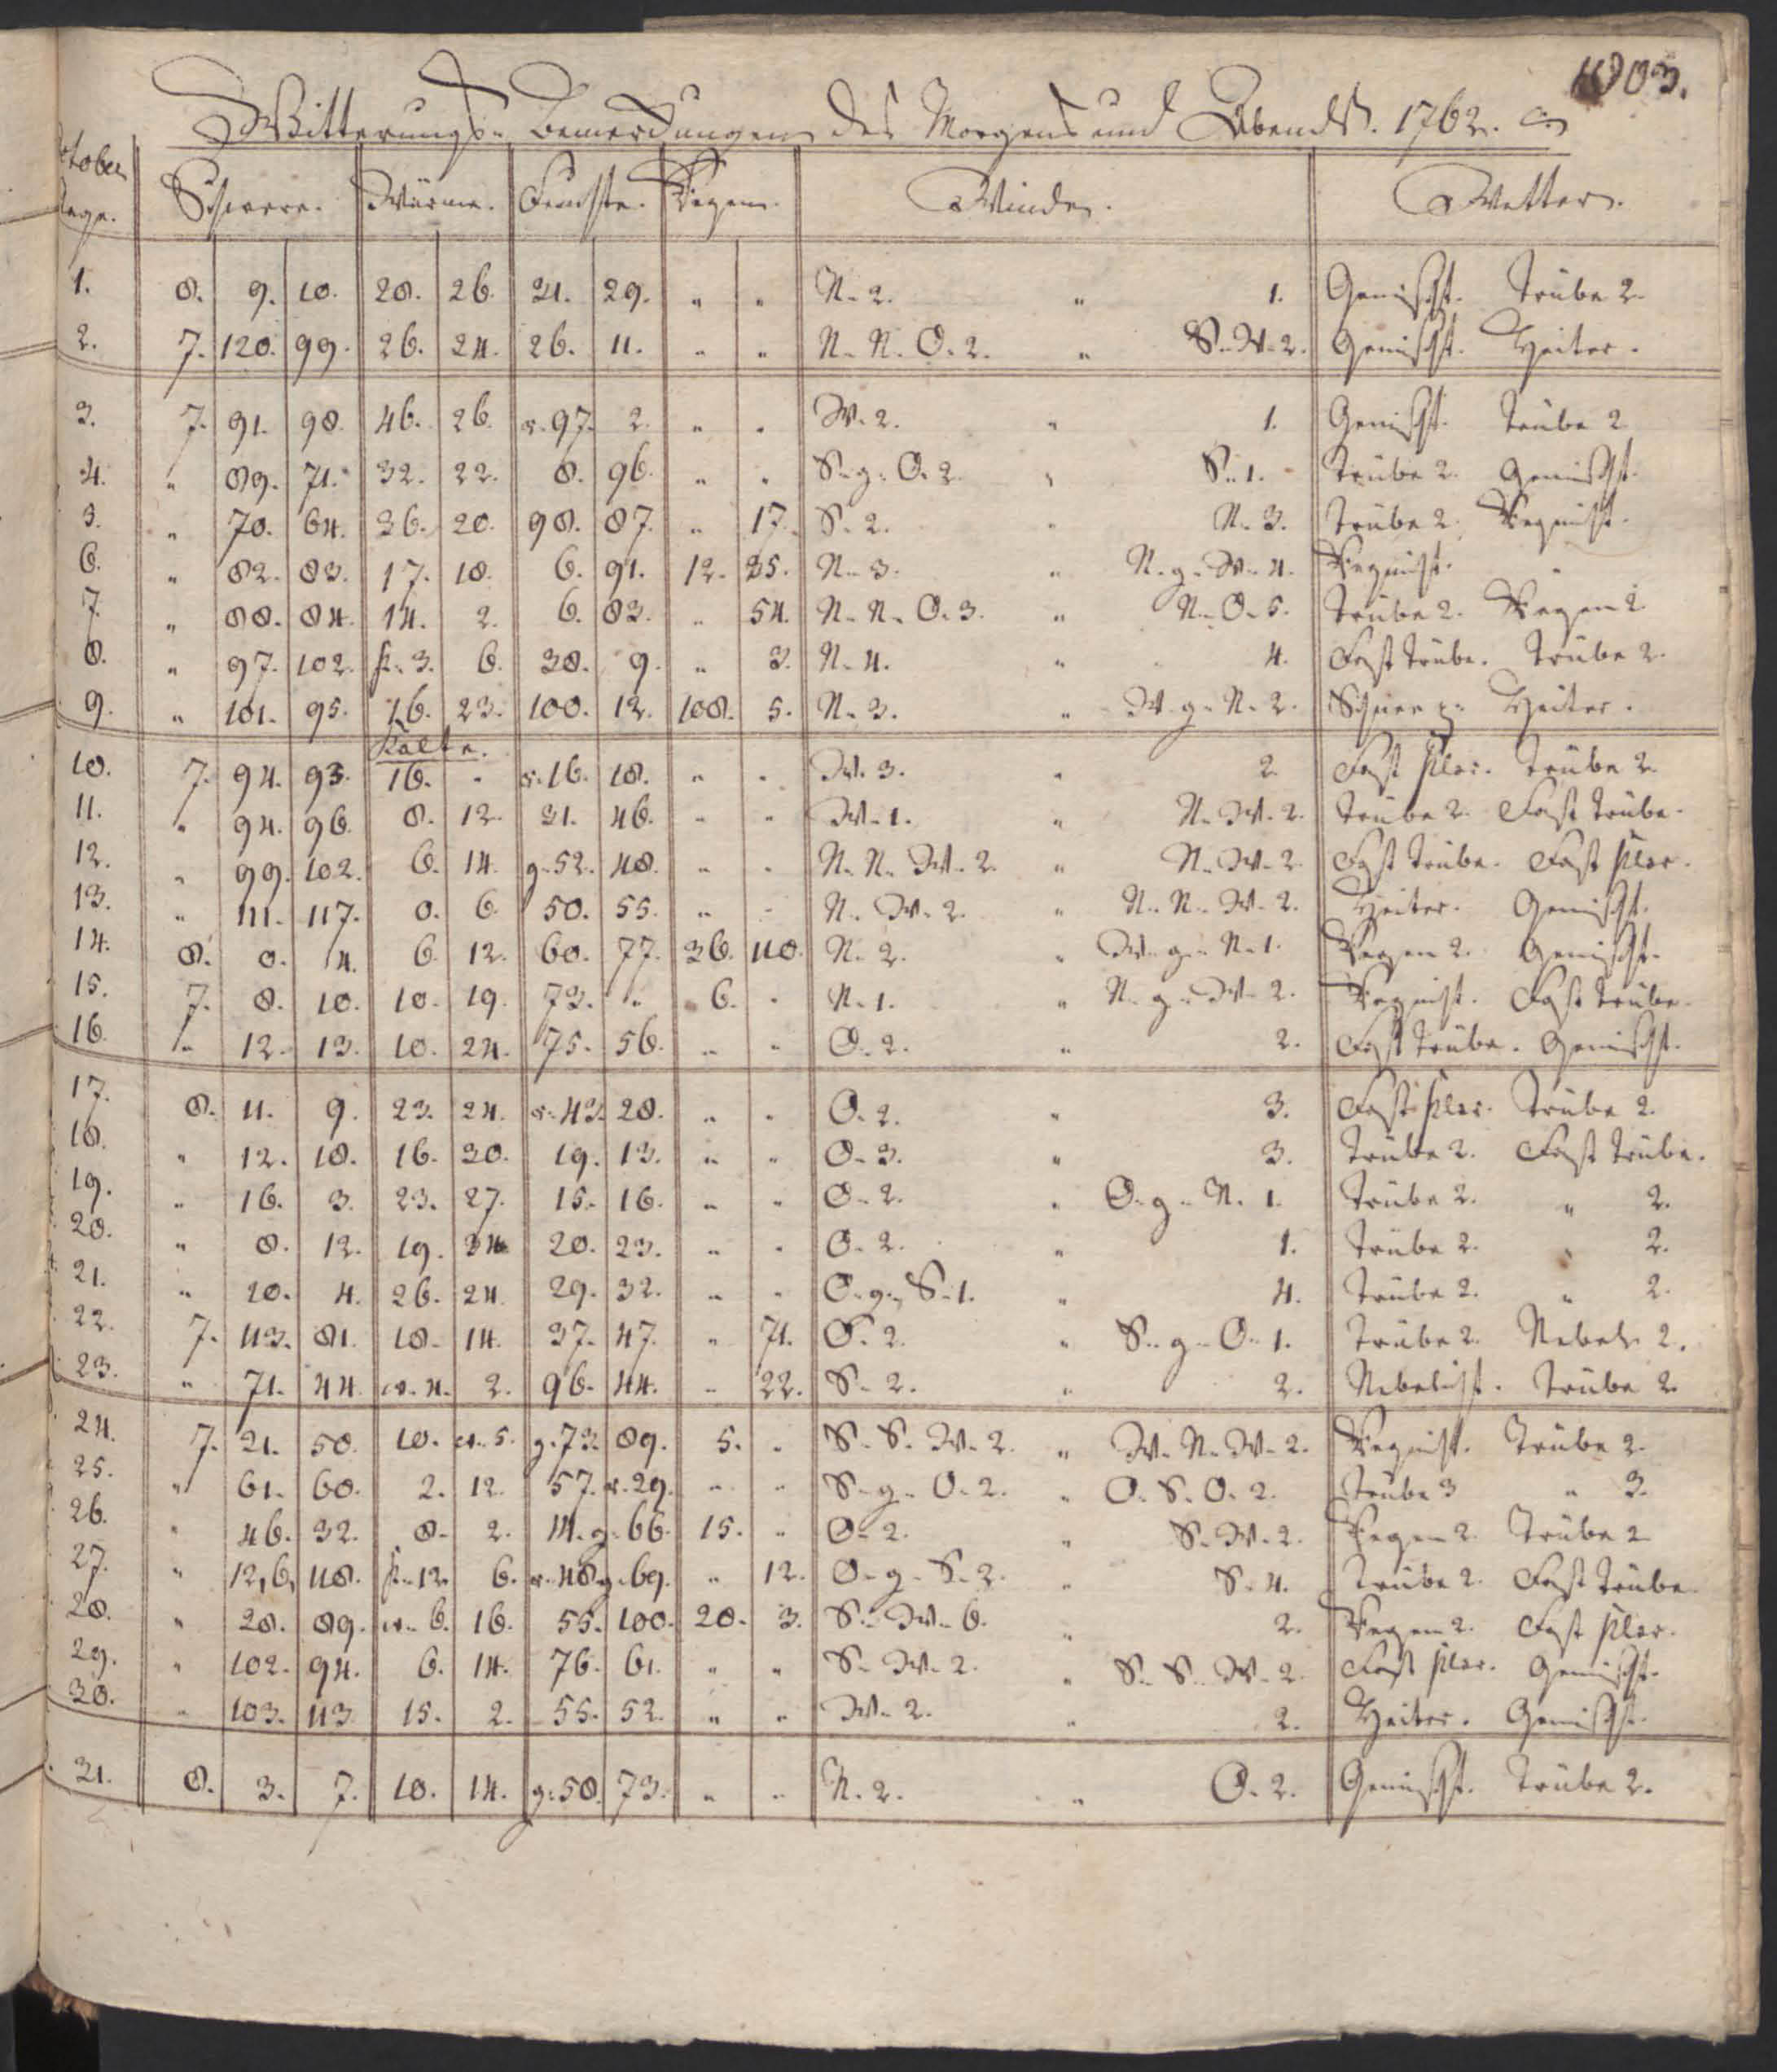 1003.
Witterungs- Bemerckungen des Morgens und Abends. 1762.
October Tage. Schwere. Wärme. Feuchte. Regen. Winde. Wetter.
1. 8. 9. 10. 28. 26. 31. 29. " " N. 2. " 1. Gemischt. Trübe 2.
2. 7. 120. 99. 26. 24. 26. 11. " " N. N. O. 2. " S. W. 2. Gemischt. Heiter.
3. 7. 91. 98. 46. 26. r. 97. 2. " " W. 2. " 1. Gemischt. Trübe 2
4. " 89. 71. 32. 22. 8. 96. " " S. g. O. 2 " S. 1. Trübe 2. Gemischt.
5. " 70. 64. 36. 20. 98. 87. " 17. S. 2. " N. 3. Trübe 2. Regnicht.
6. " 82. 83. 17. 18. 6. 91. 12. 35. N. 3. " N. g. W. 4. Regnicht. "
7. " 88. 84. 14. 2. 6. 83. " 54. N. N. O. 3. " N. O. 5. Trübe 2. Regen 2
8. " 97. 102. k. 3. 6. 38. 9. " 3. N. 4. " 4. Fast trübe. Trübe 2.
9. " 101. 95. 16. 23. 100. 12. 108. 5. N. 3. " W. g. N. 2. Heiter.
Kälte.
10. 7. 94. 93. 16. " r. 16. 18. " " W. 3. " 2. Fast klar. Trübe 2.
11. " 94. 96. 8. 12. 31. 46. " " W. 1. " N. W. 2. Trübe 2. Fast trübe.
12. " 99. 102. 6. 14. g. 52. 48. " " N. N. W. 2. " N. W. 2. Fast trübe. Fast klar.
13. " 111. 117. 0. 6. 50. 55. " " N. W. 2. " N. N. W. 2. Heiter. Gemischt.
14. 8. 0. 4. 6. 12. 60. 77. 36. 110. N. 2. " W. g. N. 1. Regen 2. Gemischt.
15. 7. 8. 10. 10. 19. 73. " 6. " N. 1. " N. g. W. 2. Regnicht. Fast trübe.
16. " 12. 13. 10. 24. 75. 56. " " O. 2. " 2. Fast trübe. Gemischt.
17. 8. 11. 9. 23. 24. r. 43. 28. " " O. 2. " 3. Fast klar. Trübe 2.
18. " 12. 18. 16. 30. 19. 13. " " O. 3. " 3. Trübe 2. Fast trübe.
19. " 16. 3. 23. 27. 15. 16. " " O. 2. " O. g. N. 1. Trübe 2. " 2.
20. " 8. 12. 19. 34 20. 23. " " O. 2. " 1. Trübe 2. " 2.
21. " 20. 4. 26. 24. 29. 32. " " O. g. S. 1. " 4. Trübe 2. " 2.
22. 7. 113. 81. 18. 14. 37. 47. " 71. O. 2. " S. g. O. 1. Trübe 2. Nebel 2.
23. " 71. 44. w. 4. 2. 96. 44. " 22. S. 2. " 2. Nebelicht. Trübe 2.
24. 7. 21. 50. 10. w. 5. g. 73. 89. 5. " S. S. W. 2. " W. N. W. 2. Regnicht. Trübe 2.
25. " 61. 60. 2. 12. 57. r. 29. " " S. g. O. 2. " O. S. O. 2. Trübe 3 " 3.
26. " 46. 32. 8. 2. 14. g. 66. 15. " O. 2. " S. W. 2. Regen 2. Trübe 2
27. " 12,6, 118. k. 12. 6. r. 48. g. 69. " 12. O. g. S. 2. " S. 4. Trübe 2. Fast trübe.
28. " 28. 89. w. 6. 16. 55. 100. 20. 3. S. W. 6. " 2. Regen 2. Fast klar.
29. " 102. 94. 6. 14. 76. 61. " " S. W. 2. " S. S. W. 2. Fast klar. Gemischt.
30. " 103. 113. 15. 2. 55. 52. " " W. 2. " 2. Heiter. Gemischt.
31. 8. 3. 7. 10. 14. g. 58. 73. " " N. 2. " O. 2. Gemischt. Trübe 2.